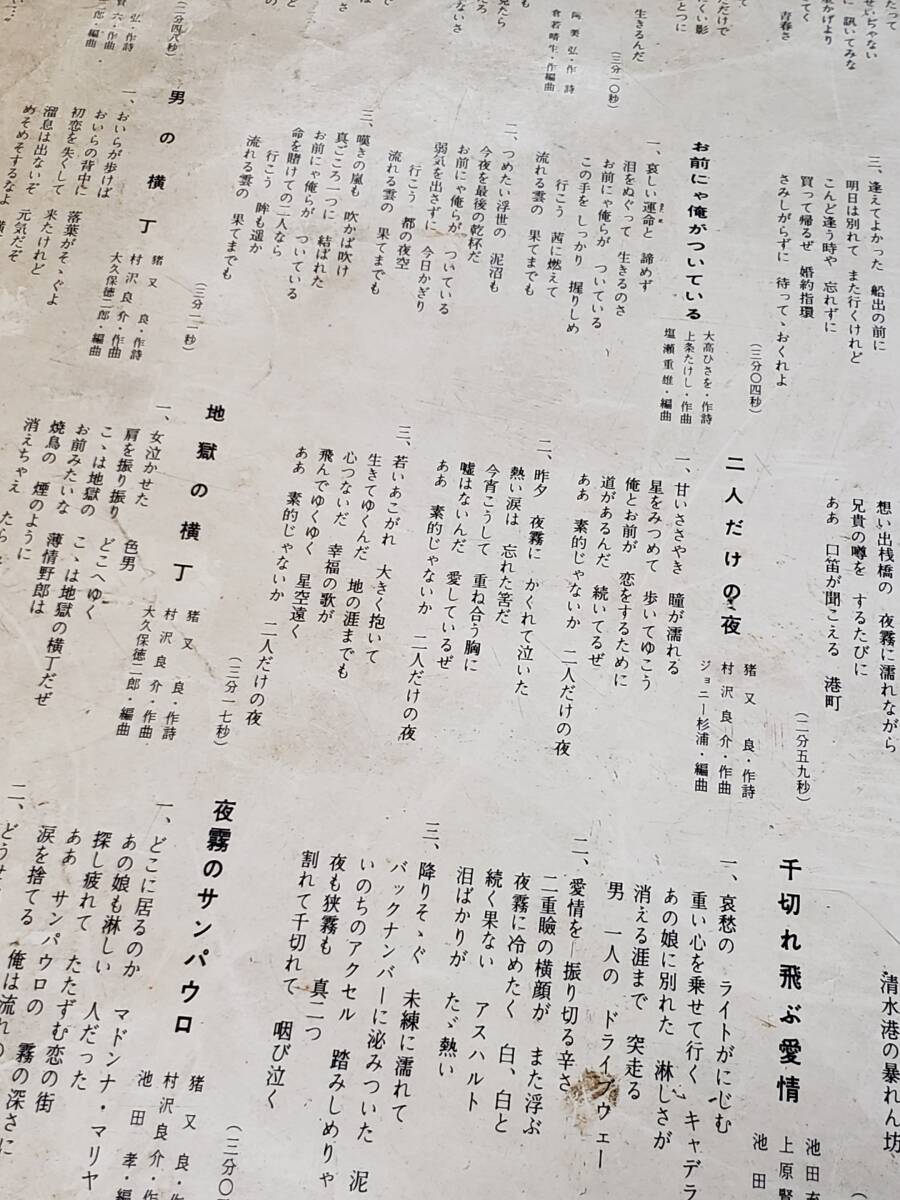 たって
せいじゃない
に 訊いてみな
影かげより
てく
青春さ
て
だけで
くい影
とつに
生きるんだ
も
見たら
だろ
ないさ
阿美弘・作詩
倉若晴生・作編曲
(三分一〇秒)
(二分四八秒)
三、逢えてよかった 船出の前に
明日は別れて また行くけれど
こんど逢う時や 忘れずに
買って帰るぜ 婚約指環
さみしがらずに 待ってゝおくれよ
(三分〇四秒)
お前にゃ俺がついている
大高ひさを・作詩
上条たけし・作曲
塩瀬重雄・編曲
一、哀しい運命と 諦めず
泪をぬぐって 生きるのさ
お前にゃ俺らが ついている
この手を しっかり 握りしめ
行こう 茜に燃えて
流れる雲の 果てまでも
二、つめたい浮世の 泥沼も
今夜を最後の乾杯だ
お前にゃ俺らが ついている
弱気を出さずに 今日かぎり
行こう 都の夜空
流れる雲の 果てまでも
三、嘆きの嵐も 吹かば吹け
真ごころ一つに 結ばれた
お前にゃ俺らが ついている
命を賭けての二人なら
行こう 眸も遥か
流れる雲の 果てまでも
(三分一一秒)
男の横丁
猪又良・作詩
村沢良介・作曲
大久保徳二郎・編曲
一、おいらが歩けば 落葉がそゝぐよ
おいらの背中に
初恋を失くして 来たけれど
溜息は出ないぞ 元気だぞ
めそめそするなよ
想い出桟橋の 夜霧に濡れながら
兄貴の噂を するたびに
ああ 口笛が聞こえる 港町
(二分五九秒)
二人だけの夜
猪又良・作詩
村沢良介・作曲
ジョニー杉浦・編曲
一、甘いささやき 瞳が濡れる
星をみつめて 歩いてゆこう
俺とお前が 恋をするために
道があるんだ 続いてるぜ
ああ 素的じゃないか 二人だけの夜
二、昨夕 夜霧に かくれて泣いた
熱い涙は 忘れた筈だ
今宵こうして 重ね合う胸に
嘘はないんだ 愛しているぜ
ああ 素的じゃないか 二人だけの夜
三、若いあこがれ 大きく抱いて
生きてゆくんだ 地の涯までも
心つないだ 幸福の歌が
飛んでゆくゆく 星空遠く
ああ 素的じゃないか 二人だけの夜
(三分一七秒)
地獄の横丁
猪又良・作詩
村沢良介・作曲
大久保徳二郎・編曲
一、女泣かせた 色男
肩を振り振り どこへゆく
こゝは地獄の こゝは地獄の横丁だぜ
お前みたいな 薄情野郎は
焼鳥の 煙のように
消えちゃえ たら
清水港の暴れん坊
千切れ飛ぶ愛情
池田充
上原賢
池田
一、哀愁の ライトがにじむ
重い心を乗せて行く キャデラ
あの娘に別れた 淋しさが
消える涯まで 突走る
男 一人の ドライブウェー
二、愛情を 振り切る辛さ
二重瞼の横顔が また浮ぶ
夜霧に冷めたく 白、白と
続く果ない アスハルト
泪ばかりが たゞ熱い
三、降りそゝぐ 未練に濡れて
バックナンバーに泌みついた 泥
いのちのアクセル 踏みしめりゃ
夜も狭霧も 真二つ
割れて千切れて 咽び泣く
(三分〇
夜霧のサンパウロ
猪又良・作
村沢良介・作
池田孝・編
一、どこに居るのか マドンナ・マリヤ
あの娘も淋しい 人だった
探し疲れて たたずむ恋の街
ああ サンパウロの 霧の深さに
涙を捨てる 俺は流れの
二、どうせ